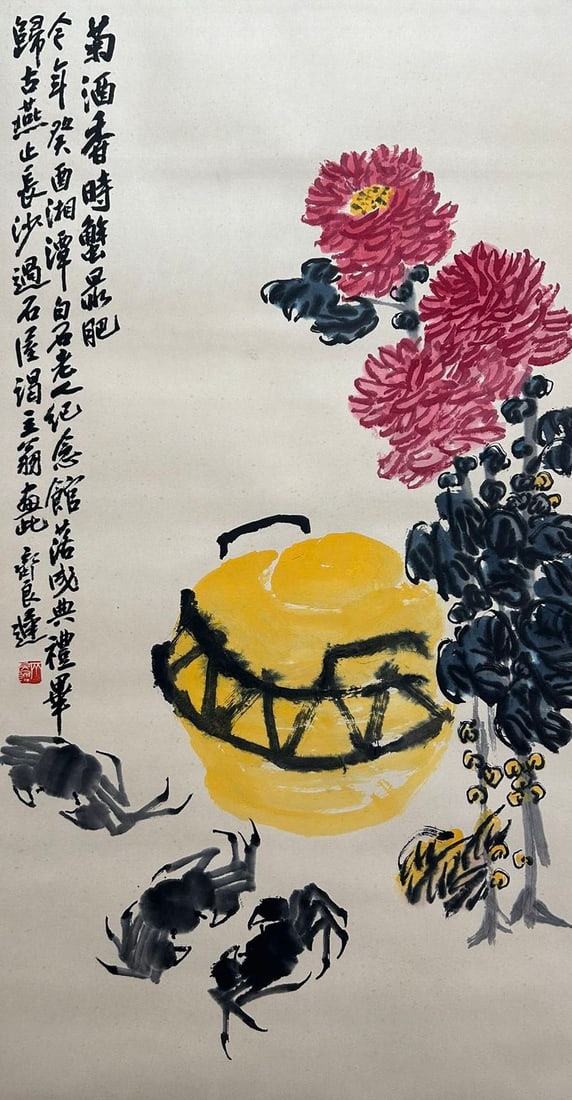 菊酒香時蟹最肥
今年癸酉湘潭白石老人紀念館落成典禮畢
歸古燕止長沙過石厓謁主翁画此 齊良遲